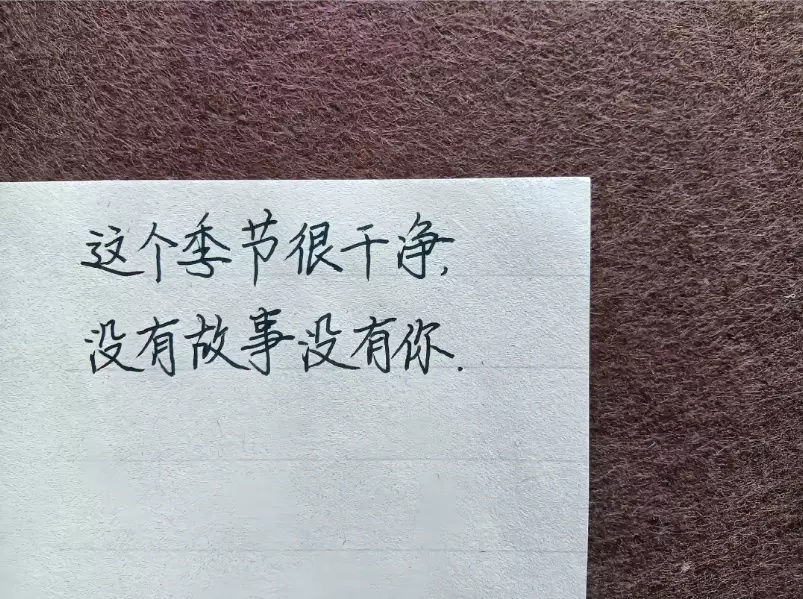 这个季节很干净,
没有故事没有你.